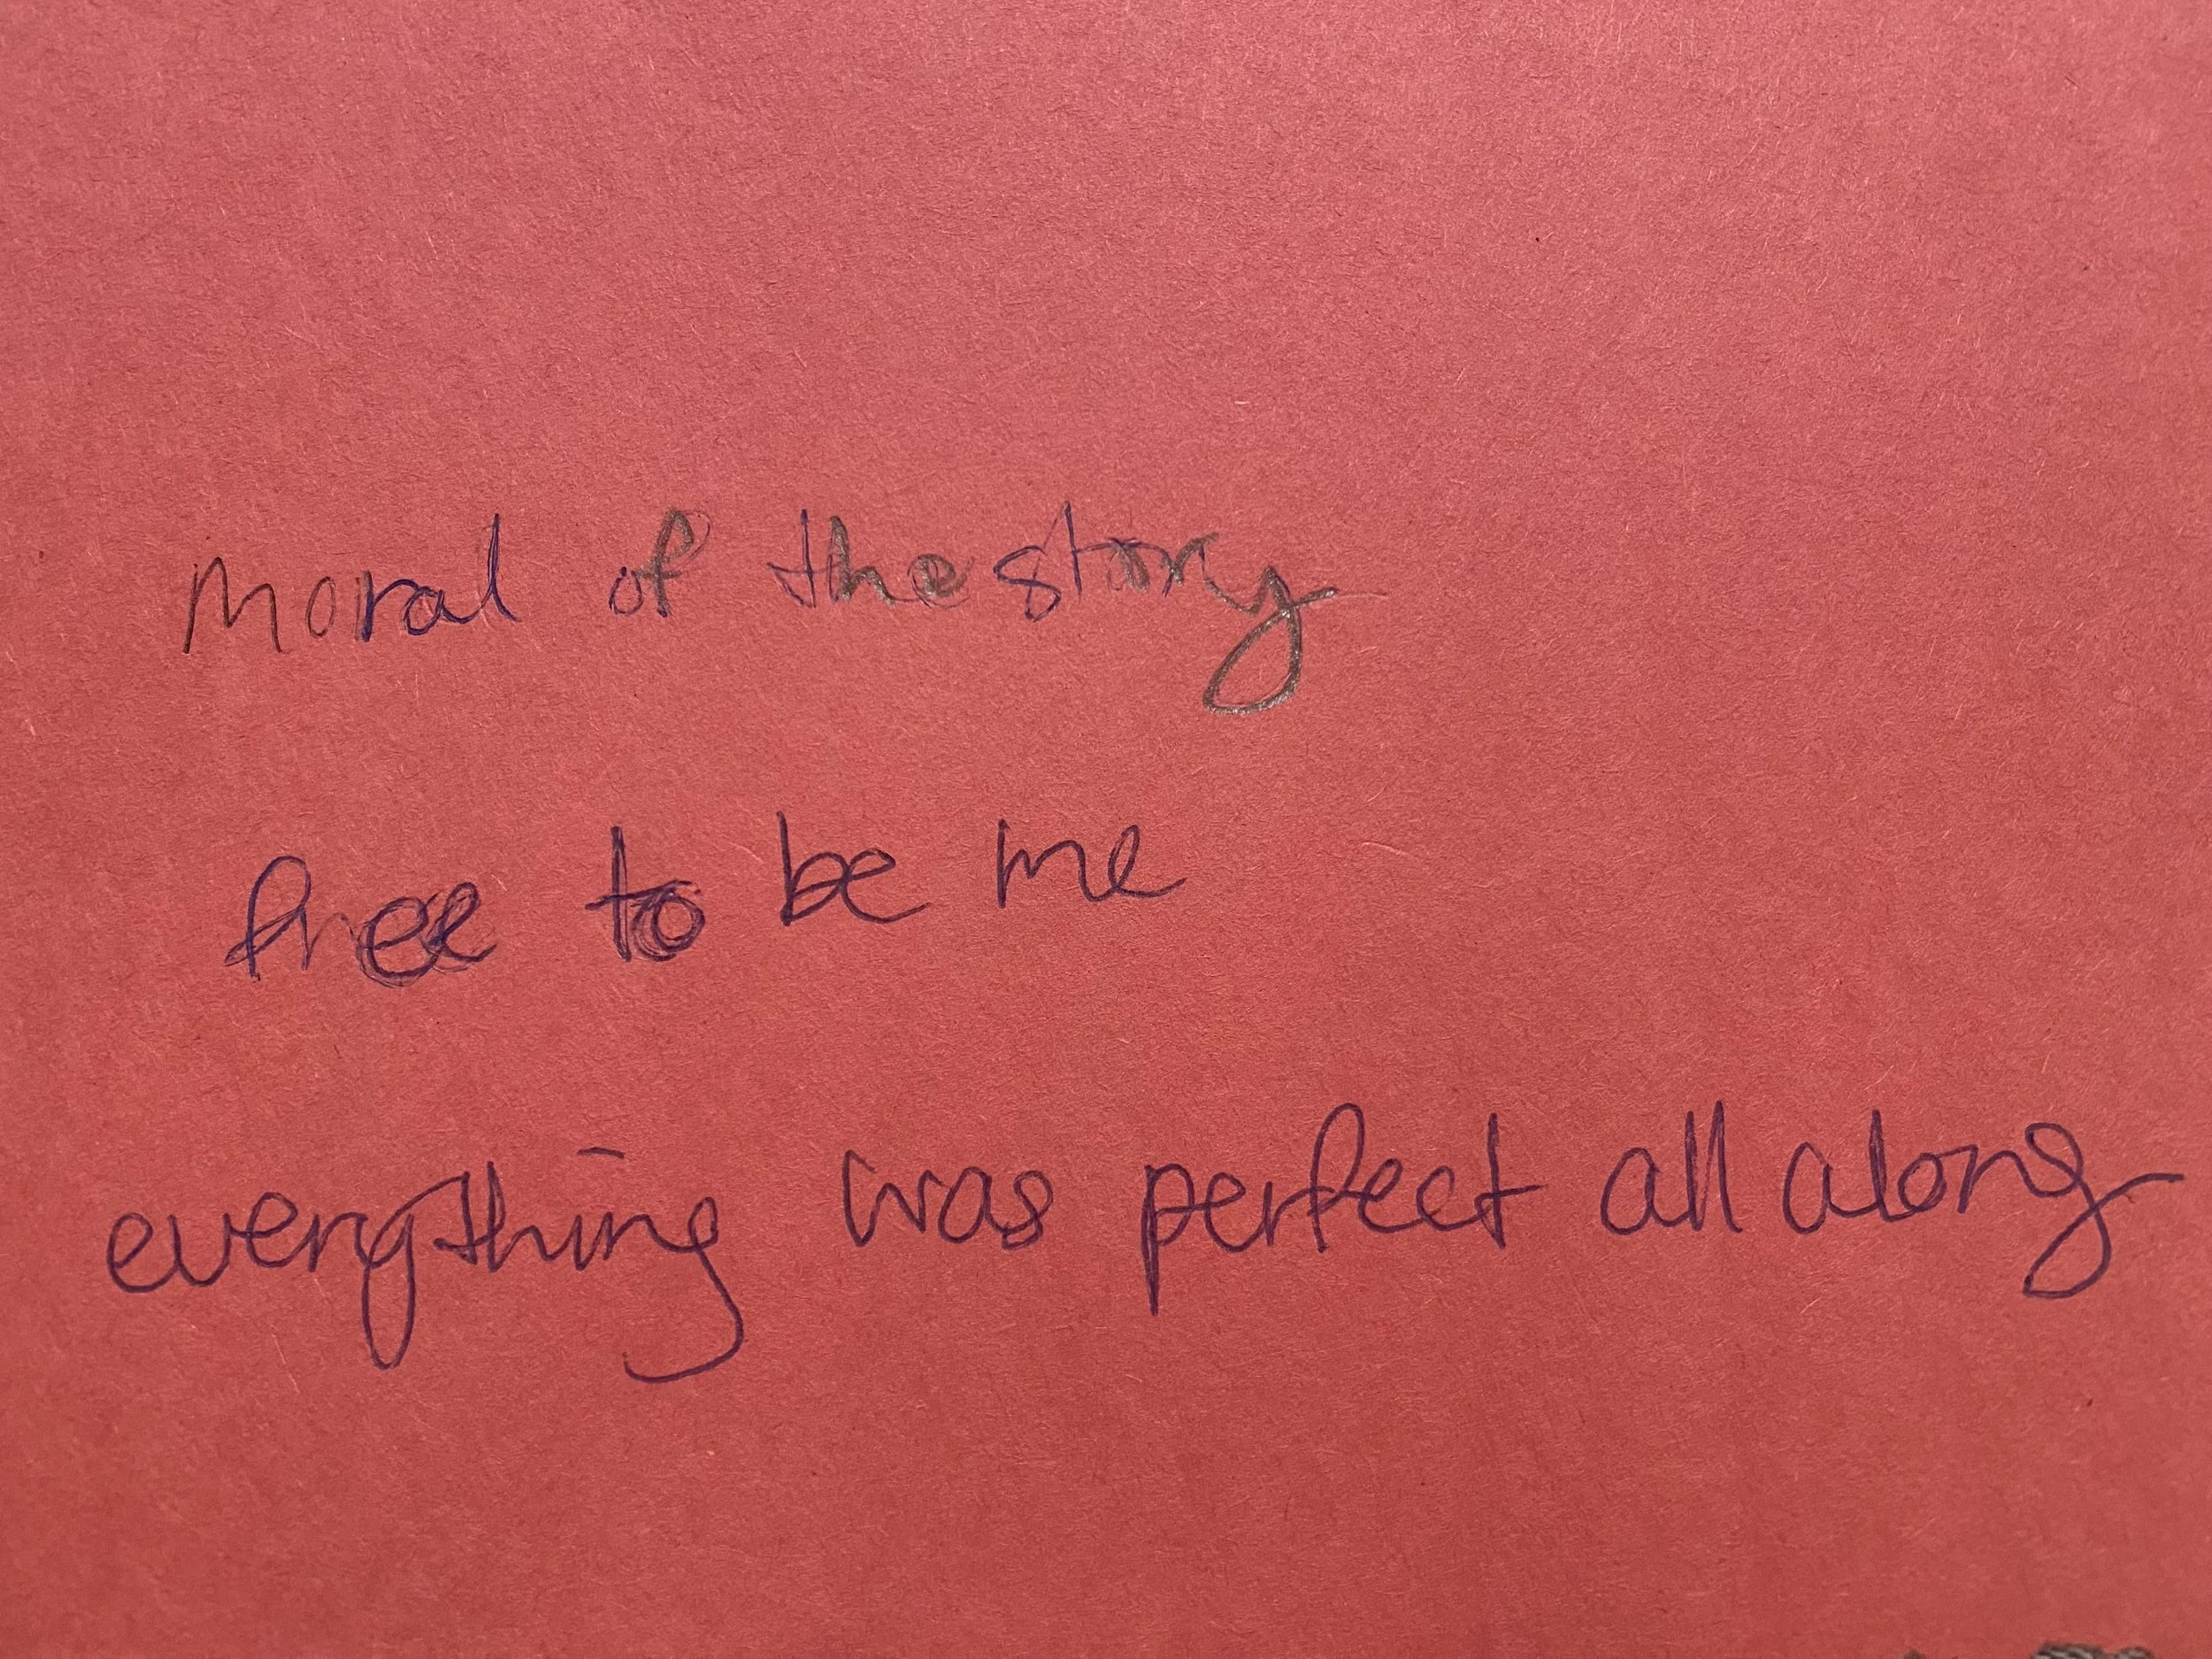 Moral of the story
free to be me
everything was perfect all along